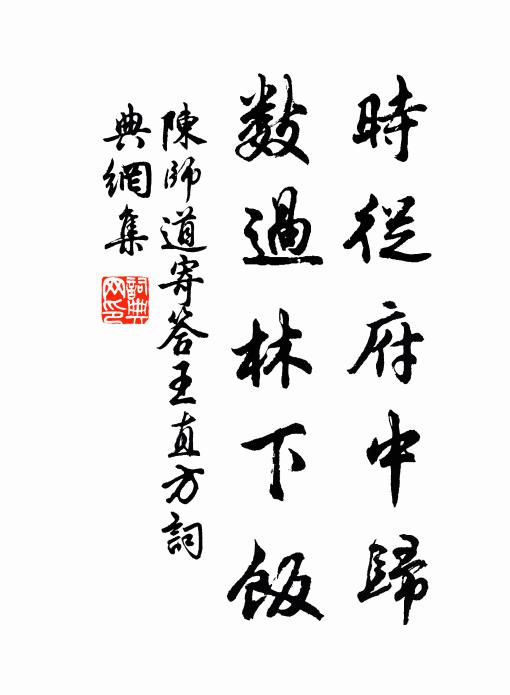 時從府中歸
數過林下飯
陳師道寄答王直方詞
典網集
詞典網印